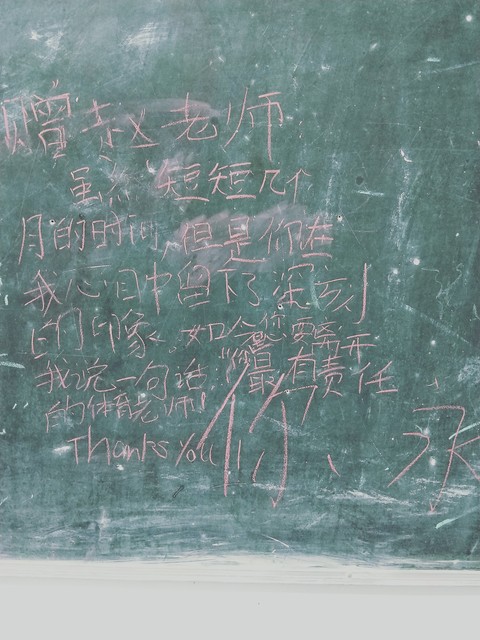 赠赵老师:
虽然短短几个
月的时间,但是你在
我心目中留下了深刻
的印象。如今您要离开
我说一句话“您是最有责任
的体育老师!
Thanks You